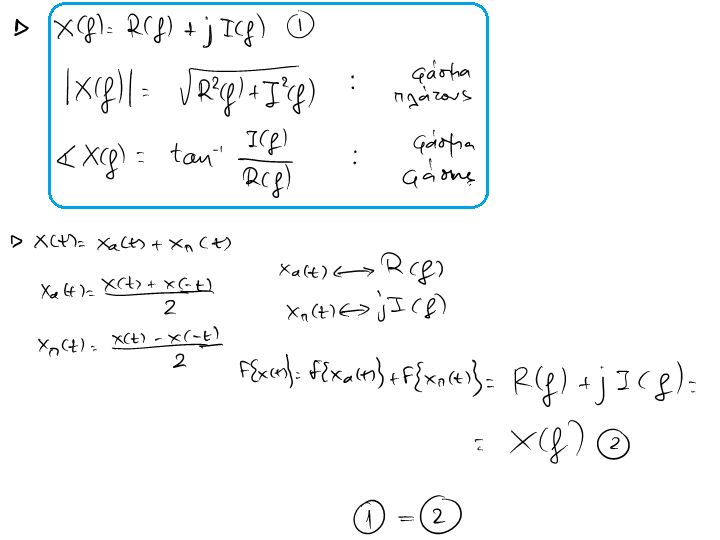 ▷ X(f) = R(f) + j I(f) ①
|X(f)| = √(R²(f) + I²(f)) : φάσμα πλάτους
∢ X(f) = tan⁻¹ I(f) / R(f) : φάσμα φάσης
▷ x(t) = xₐ(t) + xₙ(t)
xₐ(t) = (x(t) + x(-t)) / 2
xₙ(t) = (x(t) - x(-t)) / 2
xₐ(t) ↔ R(f)
xₙ(t) ↔ j I(f)
F{x(t)} = F{xₐ(t)} + F{xₙ(t)} = R(f) + j I(f) =
= X(f) ②
① = ②